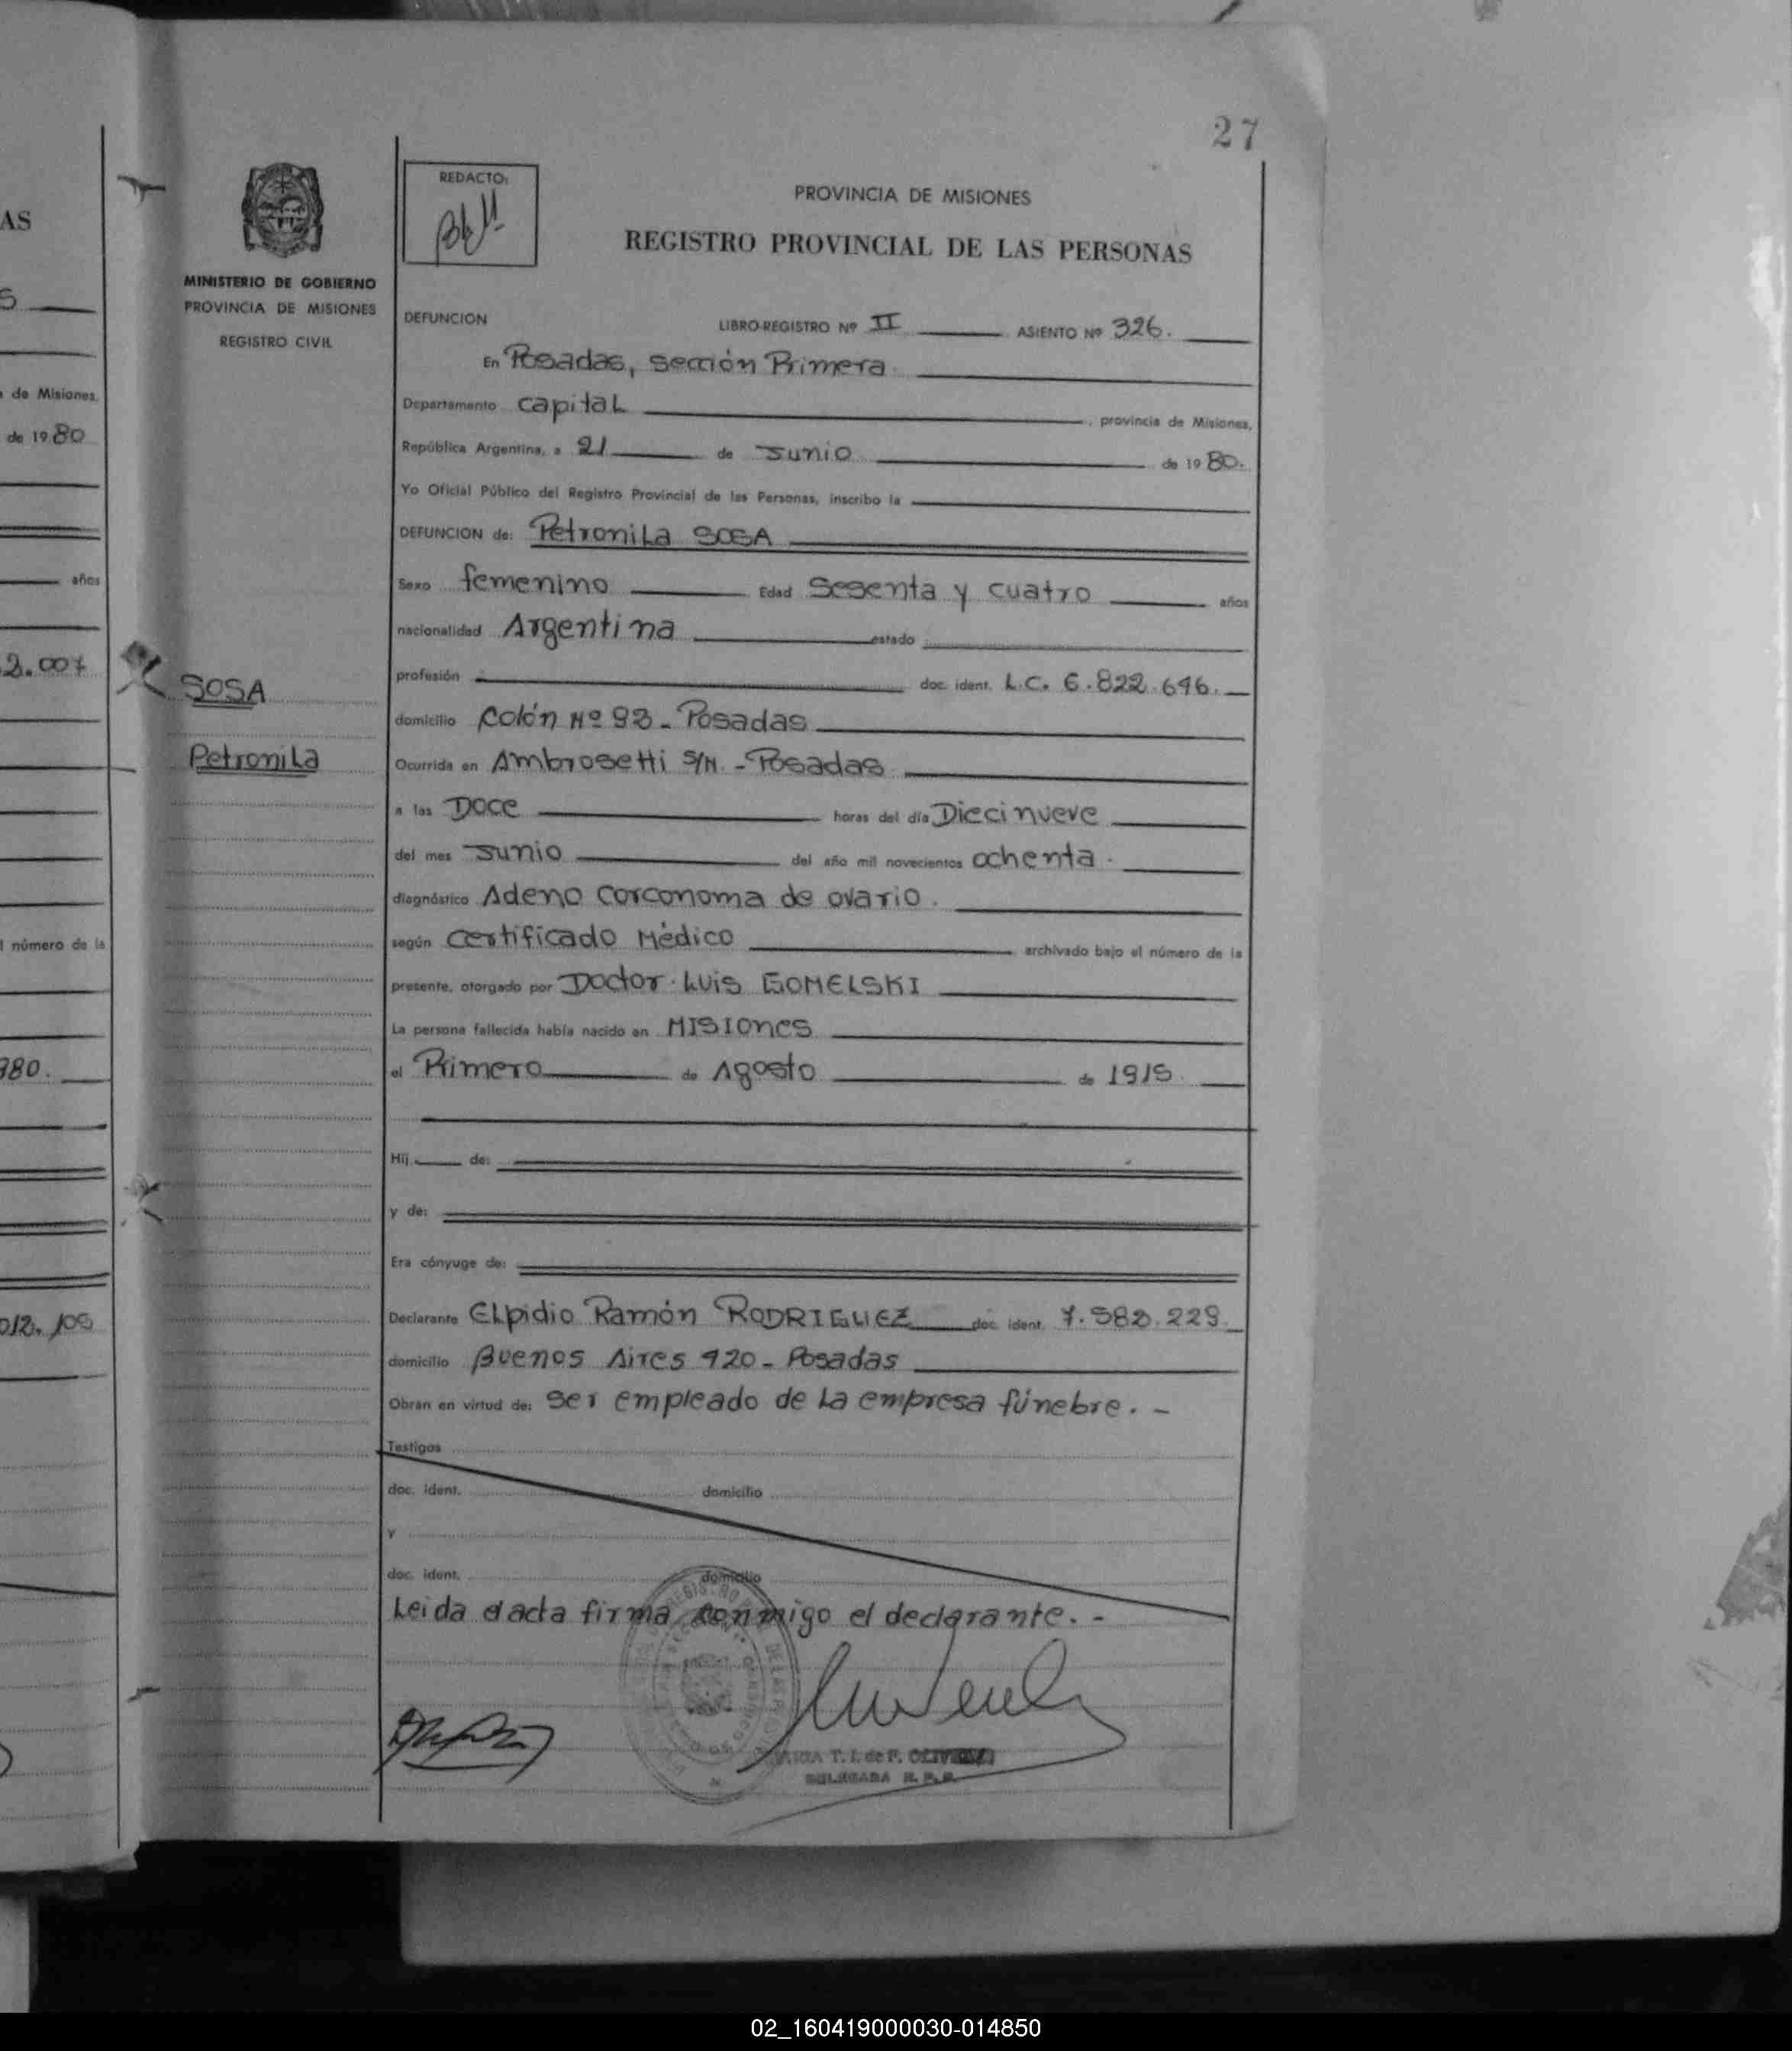 27
AS
S
de Misiones,
de 1980
años
2.007
l número de la
980.
012.105
MINISTERIO DE GOBIERNO
PROVINCIA DE MISIONES
REGISTRO CIVIL
SOSA
Petronila
REDACTO:
PROVINCIA DE MISIONES
REGISTRO PROVINCIAL DE LAS PERSONAS
DEFUNCION LIBRO-REGISTRO Nº II ASIENTO Nº 326.
En Posadas, sección Primera.
Departamento capital, provincia de Misiones,
República Argentina, a 21 de Junio de 1980.
Yo Oficial Público del Registro Provincial de las Personas, inscribo la
DEFUNCION de: Petronila SOSA
Sexo femenino Edad Sesenta y cuatro años
nacionalidad Argentina estado
profesión doc. ident. L.C. 6.822.646.
domicilio Colón Nº 93 - Posadas
Ocurrida en Ambrosetti S/N. - Posadas
a las Doce horas del día Diecinueve
del mes Junio del año mil novecientos ochenta.
diagnóstico Adeno corconoma de ovario.
según Certificado Médico archivado bajo el número de la
presente, otorgado por Doctor. Luis GOMELSKI
La persona fallecida había nacido en MISIONES
el Primero de Agosto de 1915.
Hij de:
y de:
Era cónyuge de:
Declarante Elpidio Ramón RODRIGUEZ doc. ident. 7.582.229.
domicilio Buenos Aires 920 - Posadas
Obran en virtud de: ser empleado de la empresa fúnebre. -
Testigos
doc. ident. domicilio
y
doc. ident. domicilio
Leida el acta firma conmigo el declarante. -
T. I. de F. OLIVERA
DELEGADA R. P. P.
02_160419000030-014850